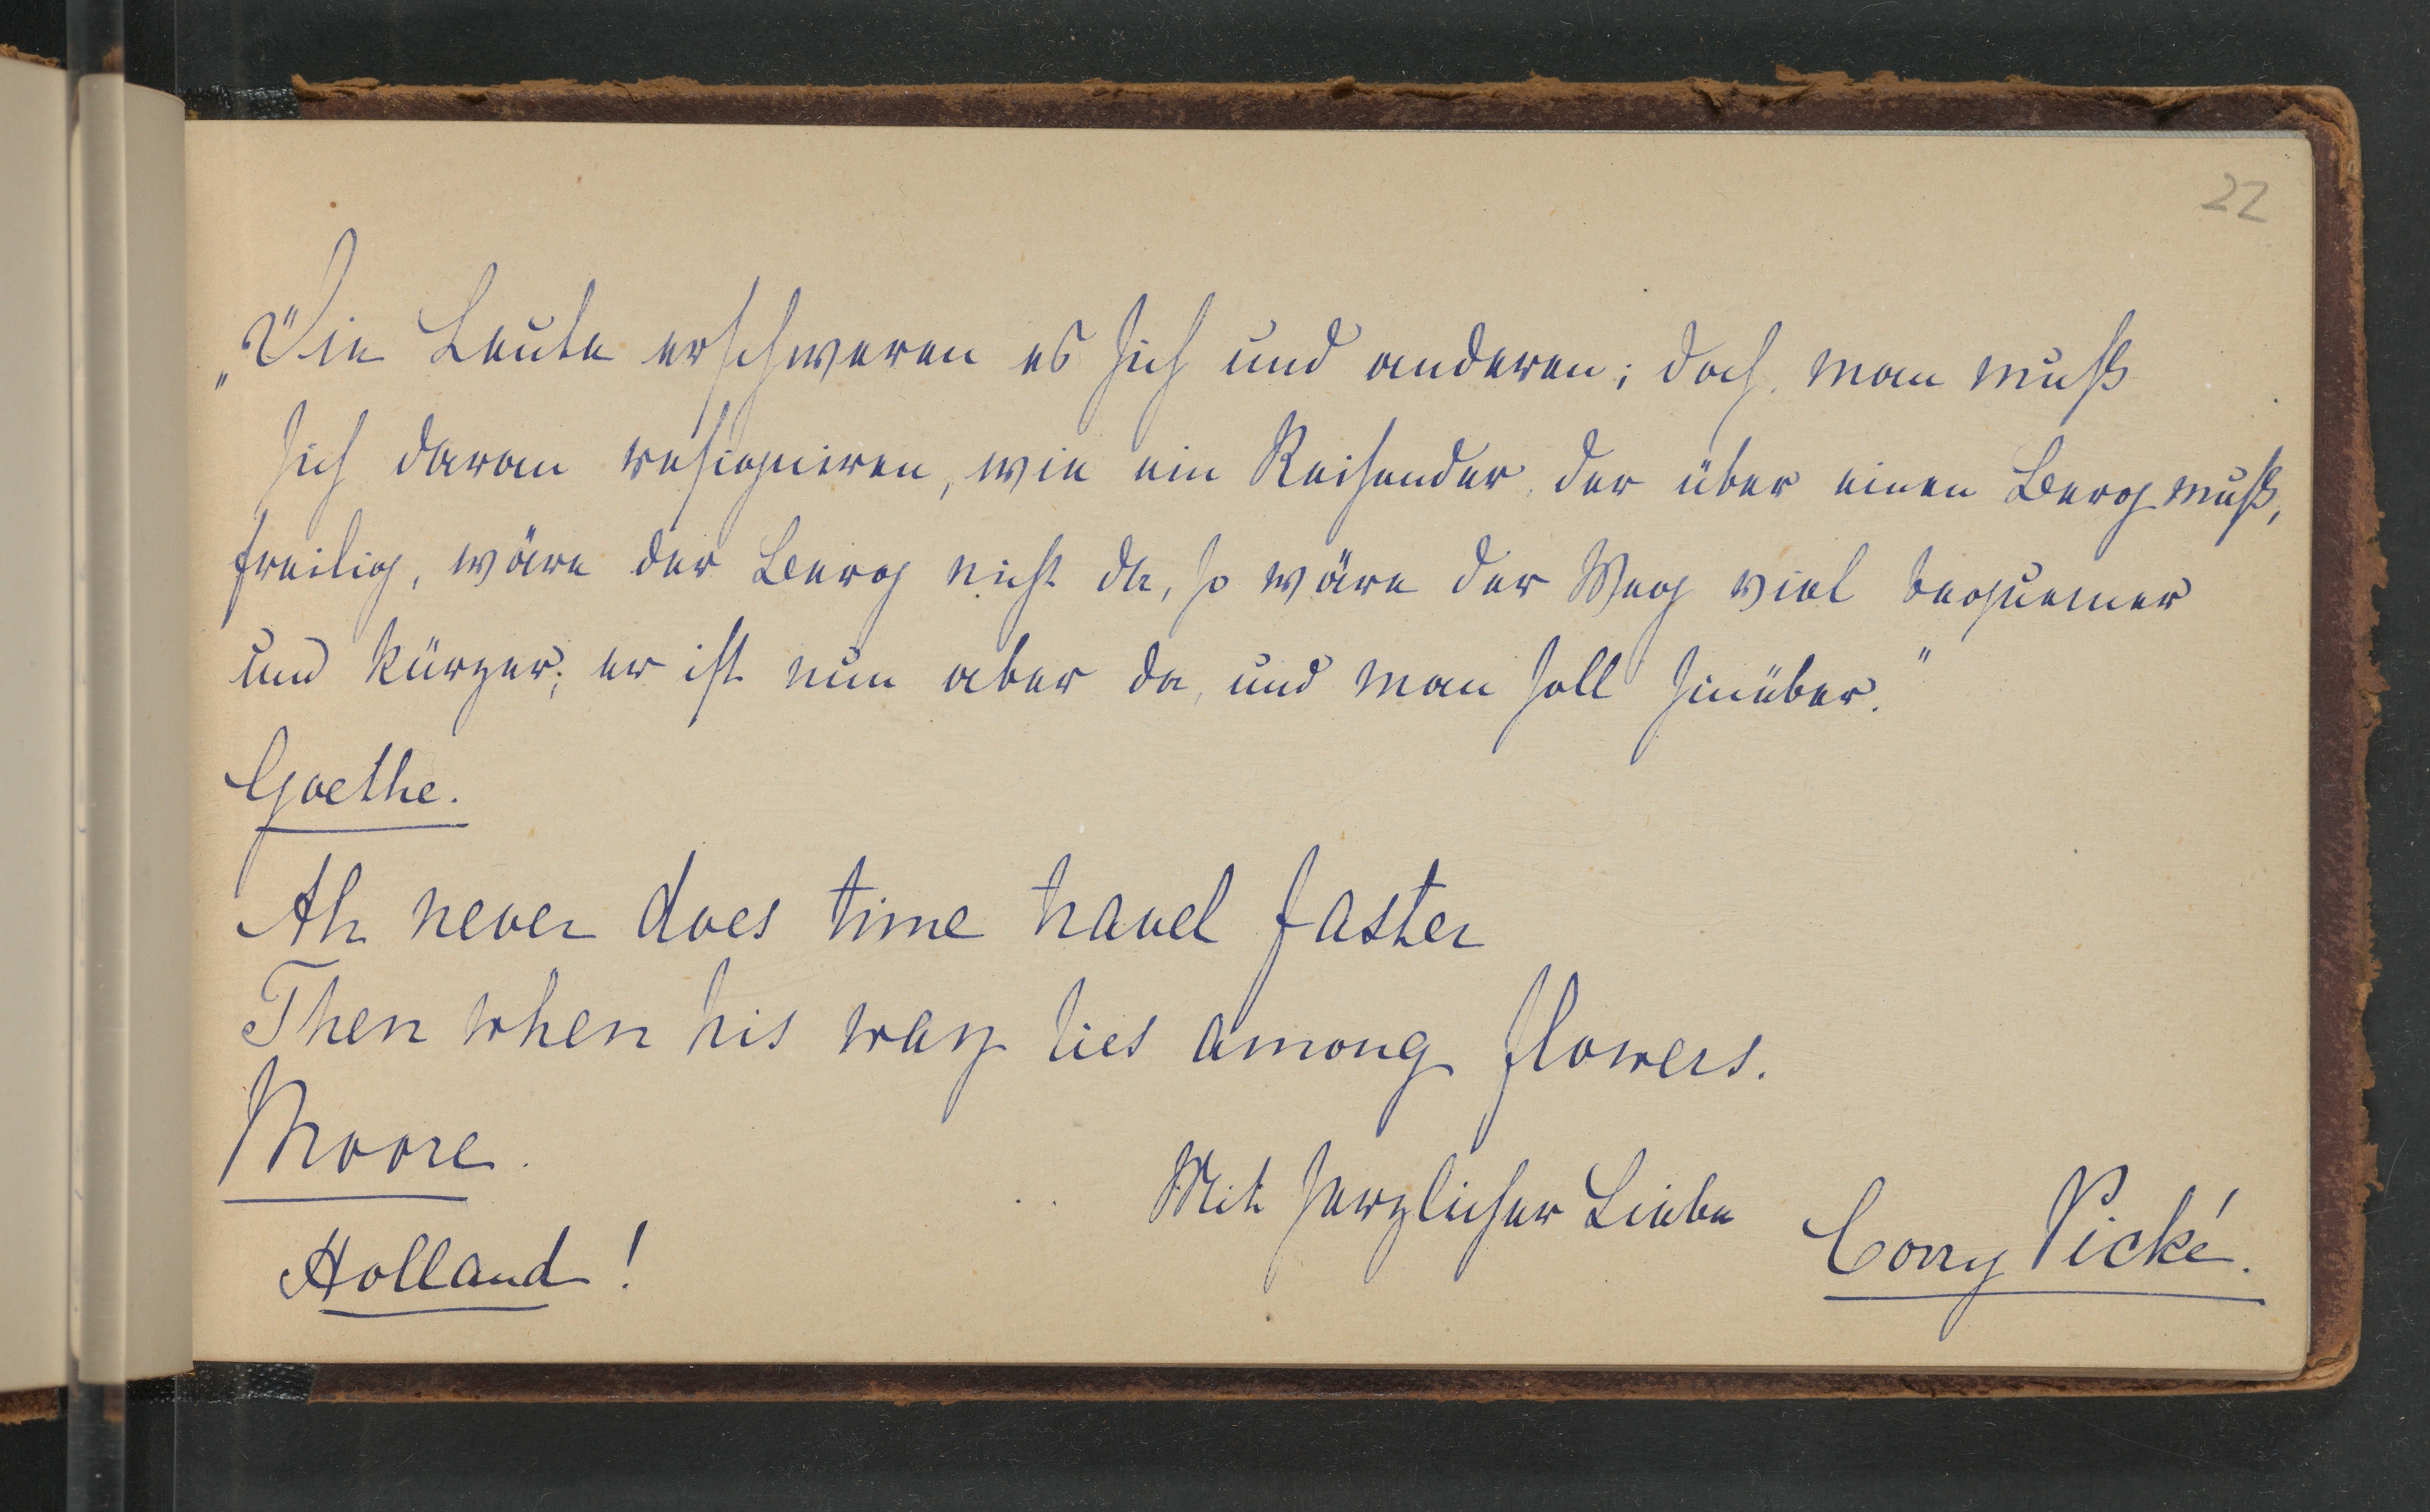 22
„Die Leute erschweren es sich und anderen; doch man muß
sich daran resigniren, wie ein Reisender, der über einen Berg muß,
freilig, wäre der Berg nicht da, so wäre der Weg viel bequemer
und kürzer; er ist nun aber da, und man soll hinüber."
Goethe.
Ah never does time travel faster
Then when his way lies among flowers.
Moore.
Mit herzlicher Liebe Corry Pické.
Holland!